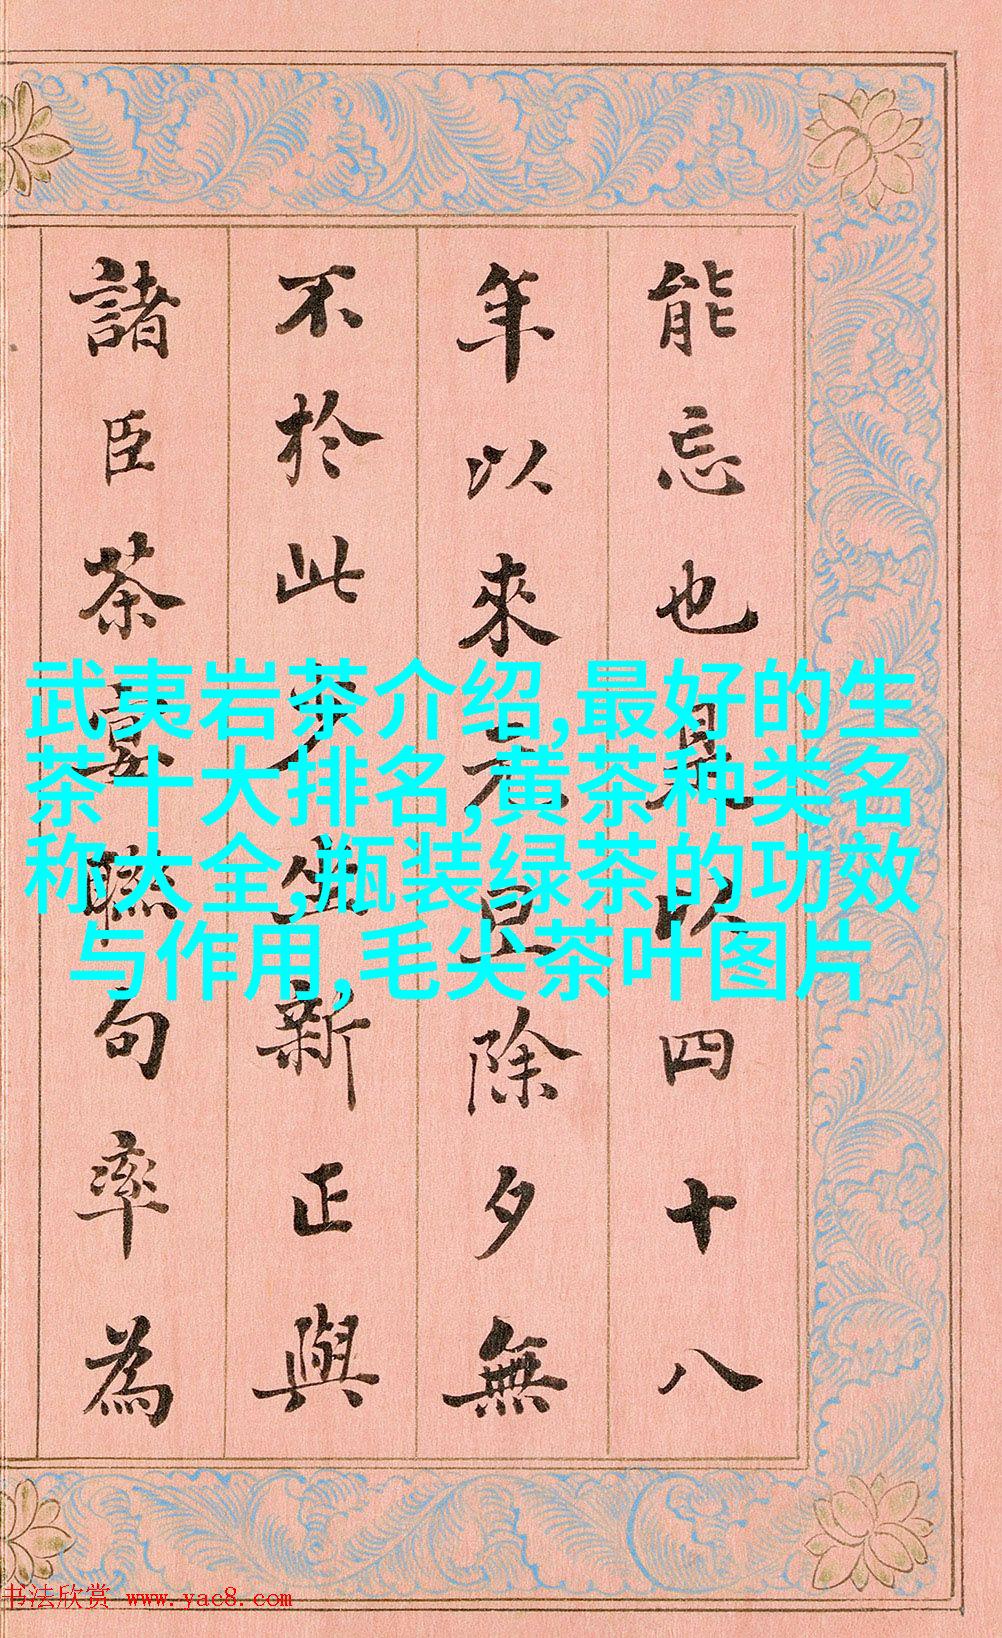 能忘也是以四十八
年以來元旦除夕無
不於此少坐新正與
諸臣茶宴聯句率為
武夷岩茶介绍,最好的生
茶十大排名,黄茶种类名
称大全,瓶装绿茶的功效
与作用,毛尖茶叶图片
书法欣赏 www.yac8.com